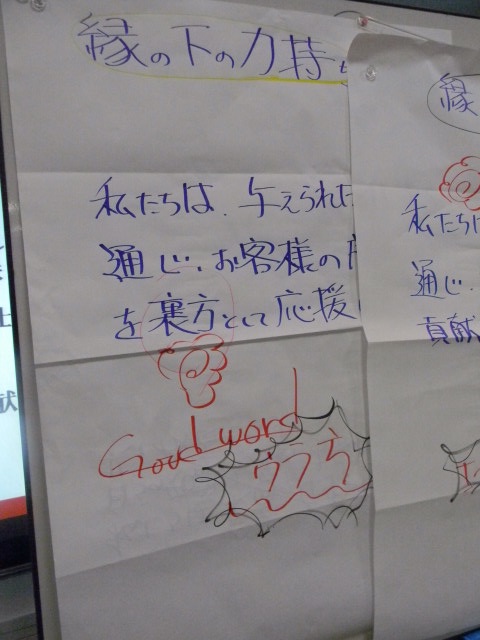 縁の下の力持
私たちは、与えられた
通じ、お客様の
を裏方として応援
Good word
ウラ方
縁
私たち
通じ、
貢献
献